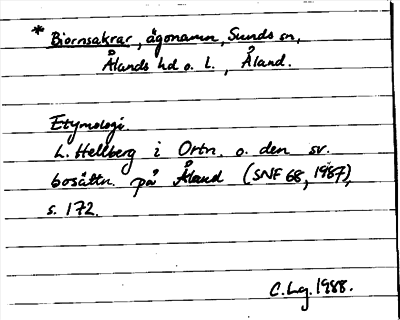 * Biornsakrar, ägonamn, Sunds sn,
Ålands hd o. l., Åland.
Etymologi.
L. Hellberg i Ortn. o. den sv.
bosättn. på Åland (SNF 68, 1987),
s. 172.
C.Lg. 1988.